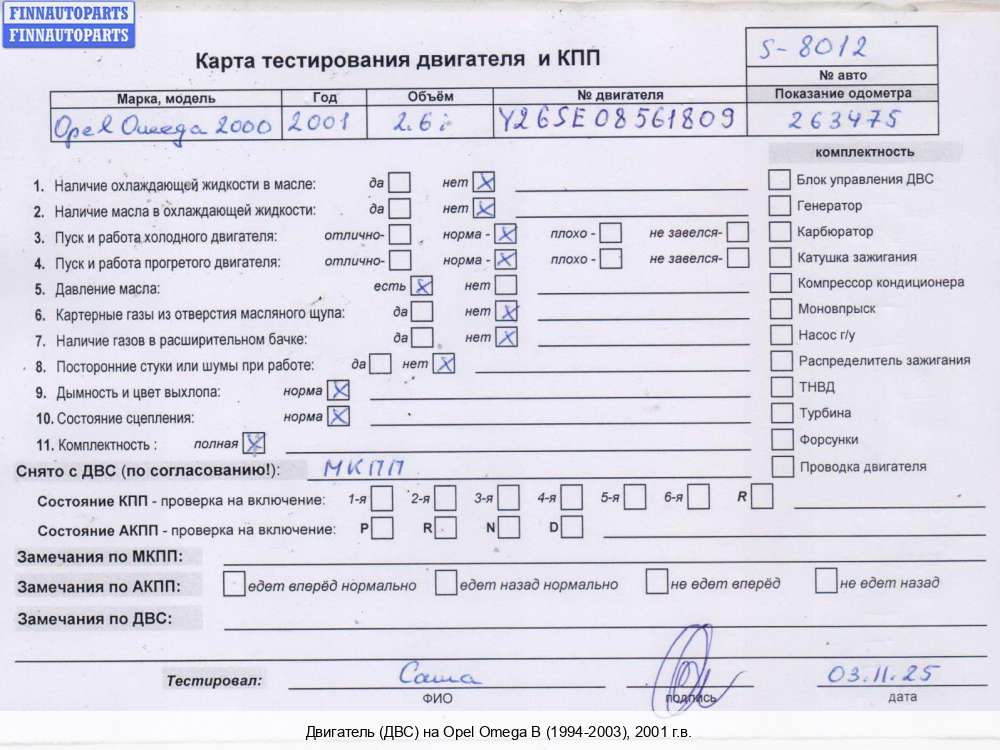 FINNAUTOPARTS
FINNAUTOPARTS
Карта тестирования двигателя и КПП
S-8012
№ авто
Марка, модель Год Объём № двигателя Показание одометра
Opel Omega 2000 2001 2.6i Y26SE 08561809 263475
комплектность
1. Наличие охлаждающей жидкости в масле: да нет X
Блок управления ДВС
2. Наличие масла в охлаждающей жидкости: да нет X
Генератор
3. Пуск и работа холодного двигателя: отлично- норма - X плохо - не завелся-
Карбюратор
4. Пуск и работа прогретого двигателя: отлично- норма - X плохо - не завелся-
Катушка зажигания
5. Давление масла: есть X нет
Компрессор кондиционера
6. Картерные газы из отверстия масляного щупа: да нет X
Моновпрыск
7. Наличие газов в расширительном бачке: да нет X
Насос г/у
8. Посторонние стуки или шумы при работе: да нет X
Распределитель зажигания
9. Дымность и цвет выхлопа: норма X
ТНВД
10. Состояние сцепления: норма X
Турбина
11. Комплектность : полная X
Форсунки
Снято с ДВС (по согласованию!): МКПП
Проводка двигателя
Состояние КПП - проверка на включение: 1-я 2-я 3-я 4-я 5-я 6-я R
Состояние АКПП - проверка на включение: P R N D
Замечания по МКПП:
Замечания по АКПП: едет вперёд нормально едет назад нормально не едет вперёд не едет назад
Замечания по ДВС:
Тестировал: Саша 03.11.25
ФИО подпись дата
Двигатель (ДВС) на Opel Omega B (1994-2003), 2001 г.в.